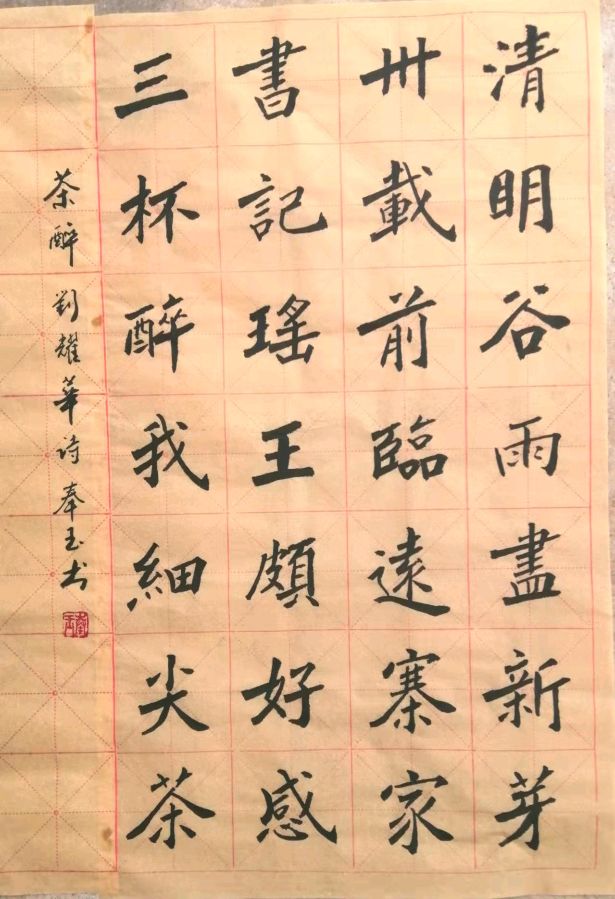 清明谷雨盡新芽
卅載前臨遠寨家
書記瑤王頗好感
三杯醉我細尖茶
茶醉 劉耀華诗 奉玉书